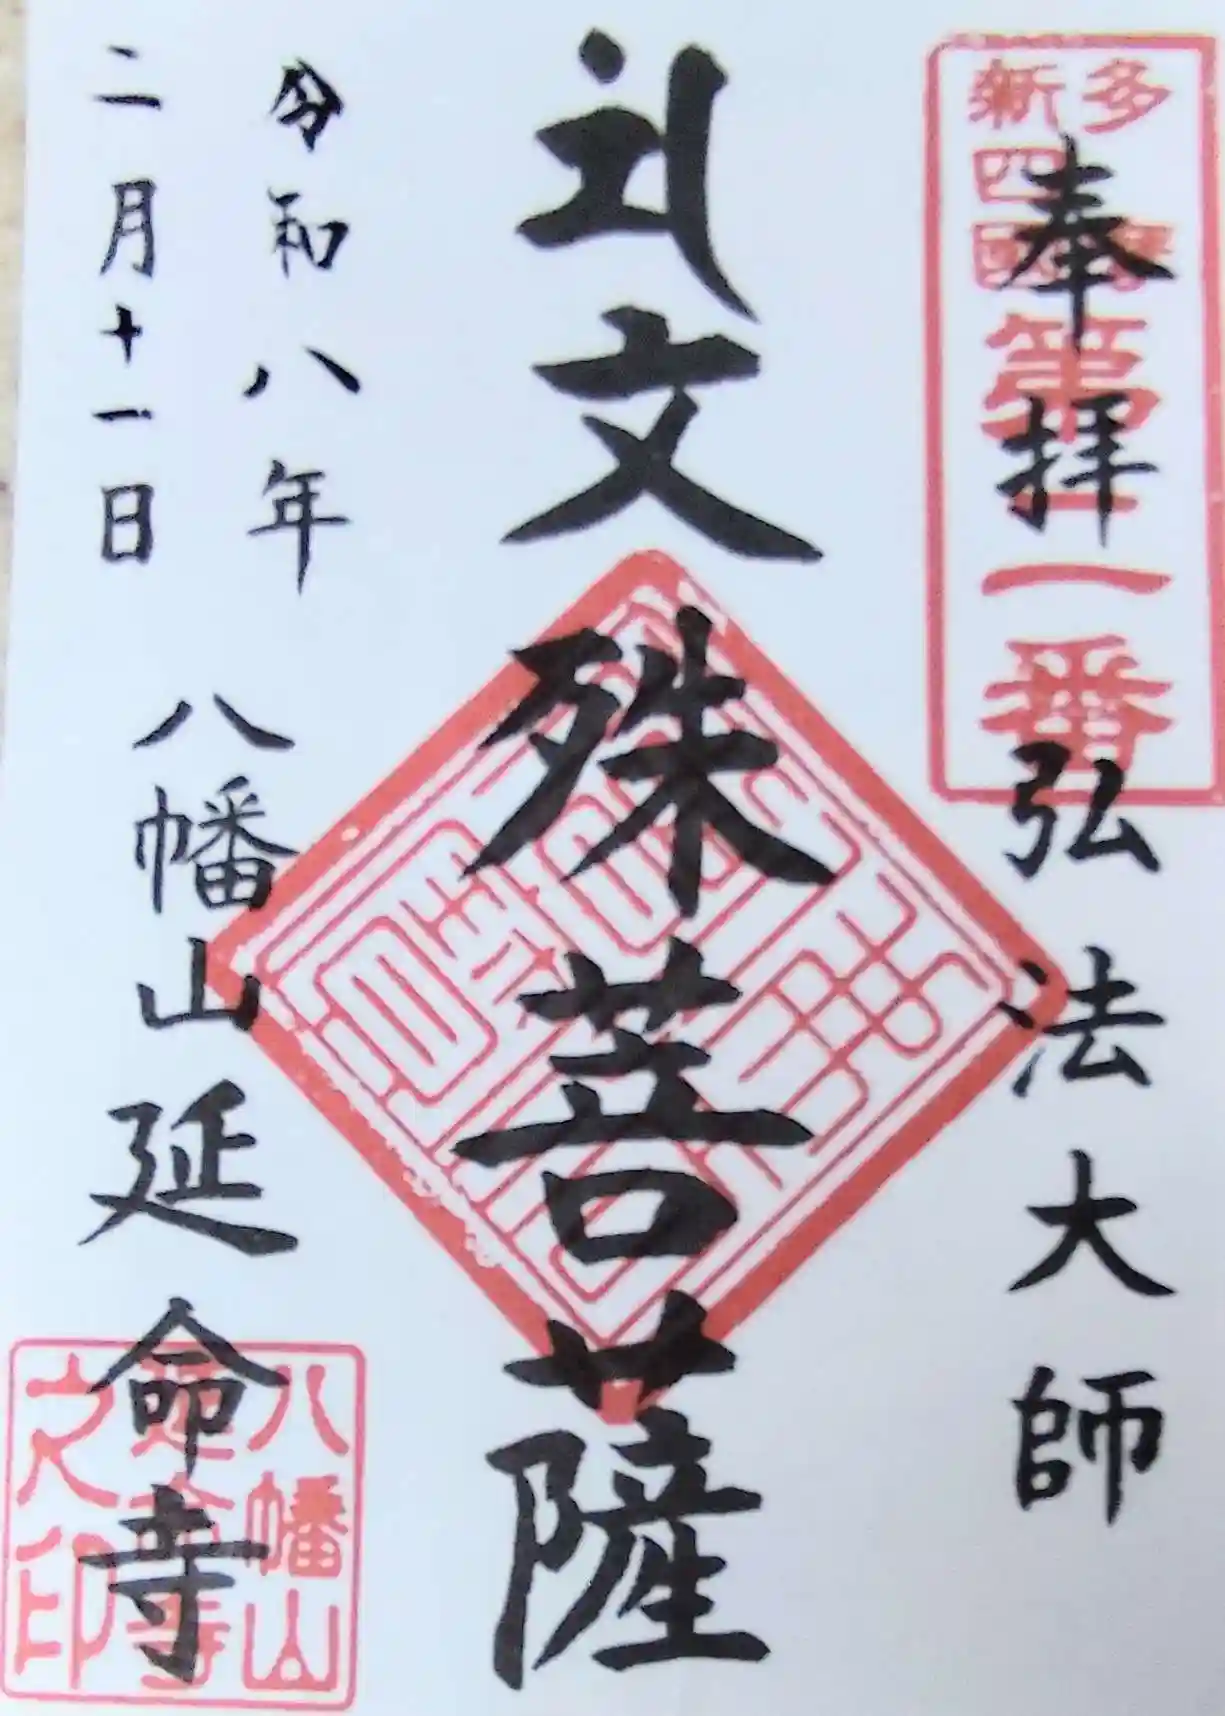 多摩
新四國
第二番
奉拝 弘法大師
文殊菩薩
令和八年
二月十一日
八幡山 延命寺
八幡山
延命寺
之印